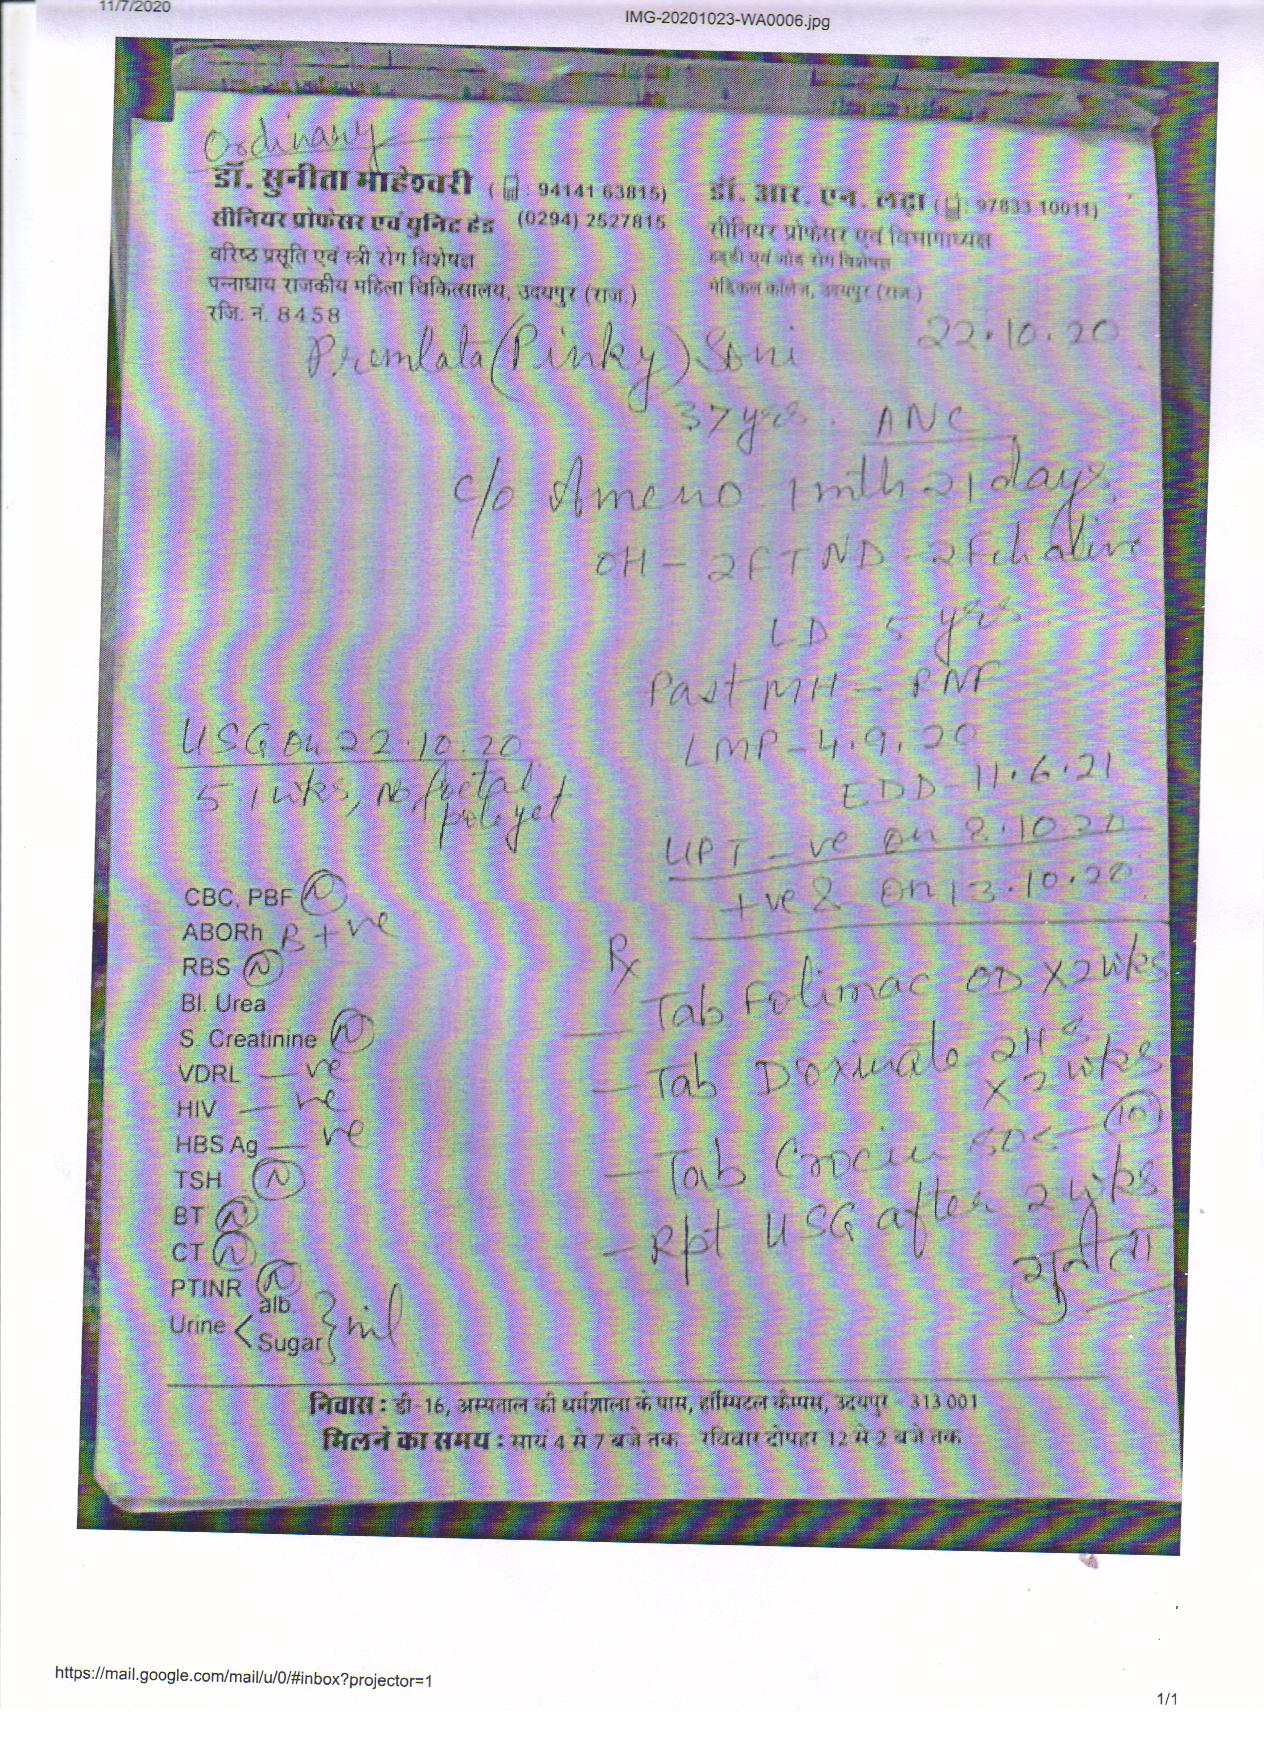 11/7/2020
IMG-20201023-WA0006.jpg
Ordinary
डॉ. सुनीता माहेश्वरी ( : 94141 63815)
सीनियर प्रोफेसर एवं यूनिट हेड (0294) 2527815
वरिष्ठ प्रसूति एवं स्त्री रोग विशेषज्ञ
पन्नाधाय राजकीय महिला चिकित्सालय, उदयपुर (राज.)
रजि. नं. 8458
डॉ. आर. एन. लढ्ढा ( : 97833 10011)
सीनियर प्रोफेसर एवं विभागाध्यक्ष
हड्डी एवं जोड़ रोग विशेषज्ञ
मेडिकल कॉलेज, उदयपुर (राज.)
22.10.20
Premlata (Pinky) Soni
37 yrs. ANC
c/o Ameno 1 mth 21 days.
OH - 2FTND - 2Fch alive
LD - 5 yrs.
Past MH - RNF
LMP - 4.9.20
EDD - 11.6.21
UPT -ve on 2.10.20
+ve on 13.10.20
USG on 22.10.20
5.1 wks, no foetal
pole yet
CBC, PBF N
ABORh B +ve
RBS N
Bl. Urea
S. Creatinine N
VDRL -ve
HIV -ve
HBS Ag -ve
TSH N
BT N
CT N
PTINR N
Urine < alb. Sugar } nil
Rx
- Tab Folimac OD X 2 wks
- Tab Doxinate 2HS
X 2 wks
- Tab Crocin SOS - 10
- Rpt USG after 2 wks
सुनीता
निवास : डी-16, अस्पताल की धर्मशाला के पास, हॉस्पिटल कैम्पस, उदयपुर - 313 001
मिलने का समय : सायं 4 से 7 बजे तक रविवार दोपहर 12 से 2 बजे तक
https://mail.google.com/mail/u/0/#inbox?projector=1
1/1